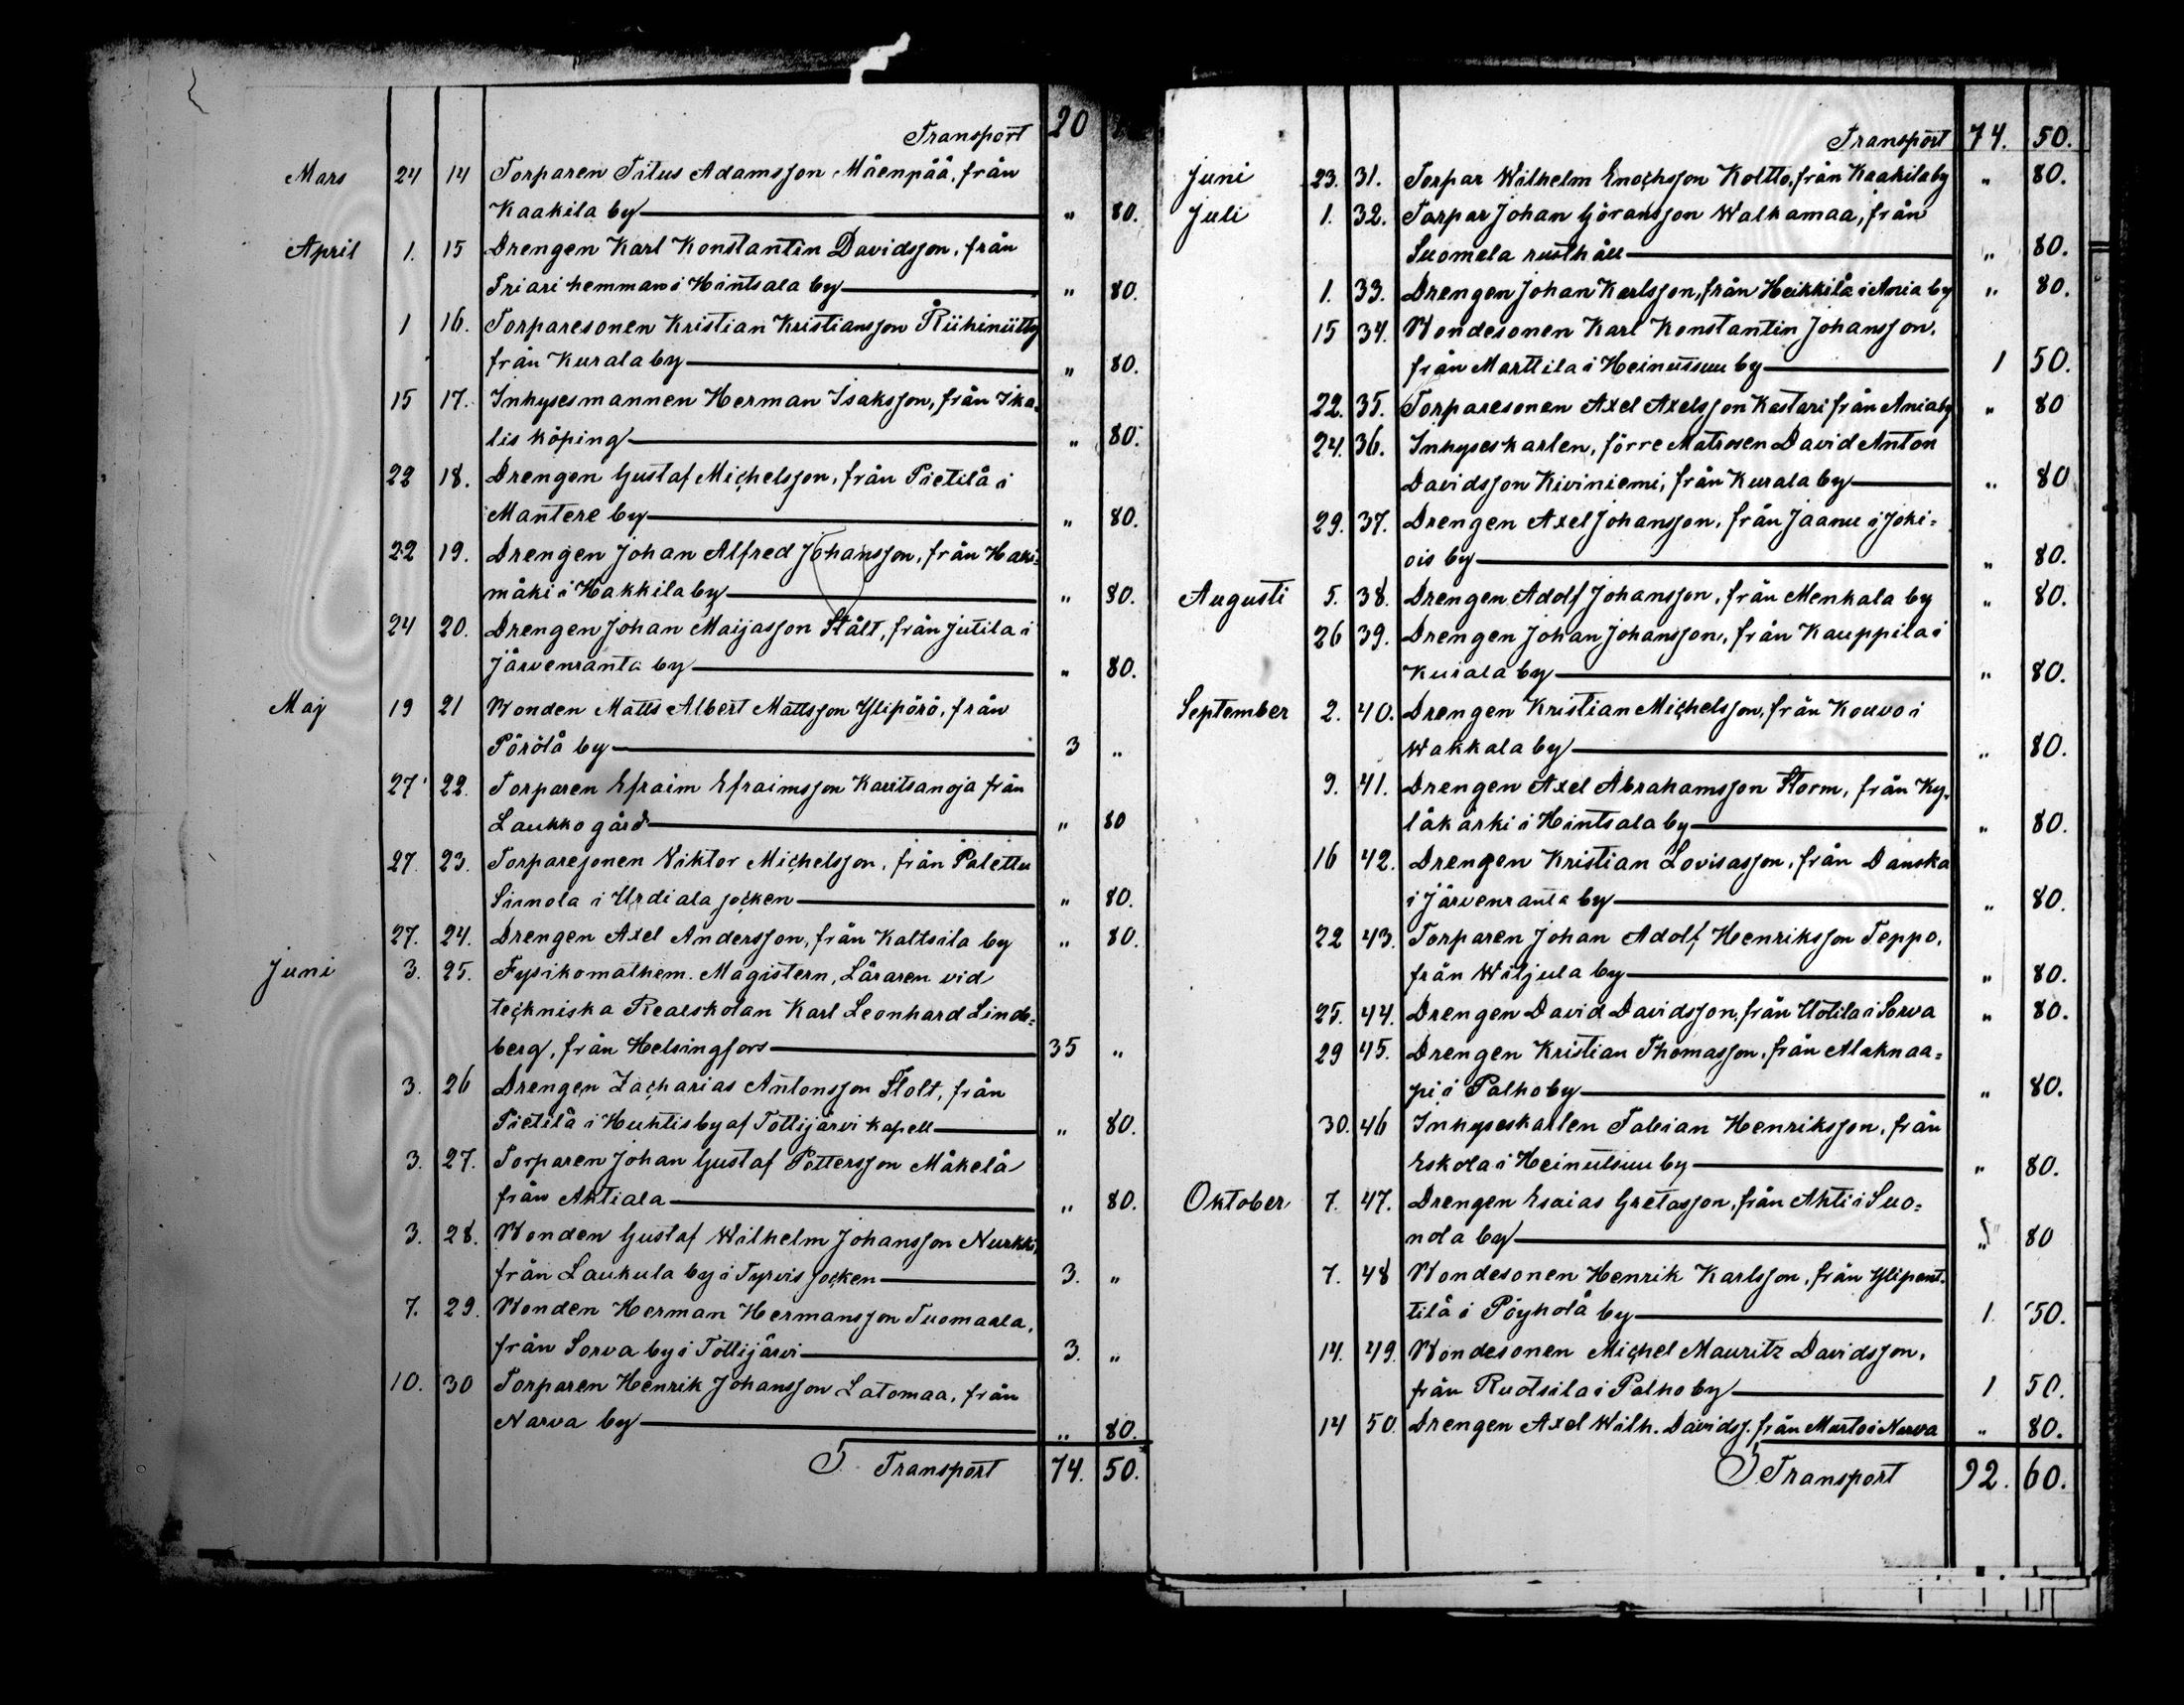 Transport 20
Mars 24 14 Torparen Titus Adamsson Mäenpää, från
Kaakila by " 80.
April 1. 15 Drengen Karl Konstantin Davidsson, från
Friari hemman i Hintsala by " 80.
1 16. Torparesonen Kristian Kristiansson Riihiniitty
från Kurala by " 80.
15 17. Inhysesmannen Herman Isaksson, från Ika-
lis köping " 80.
22 18. Drengen Gustaf Michelsson, från Pietilä i
Mantere by " 80.
22 19. Drengen Johan Alfred Johansson, från Haki-
mäki i Hakkila by " 80.
24 20. Drengen Johan Maijasson Stålt, från Jutila i
Järvenranta by " 80.
Maj 19 21 Bonden Matts Albert Mattsson Ylipörö, från
Pörölä by 3 "
27 22. Torparen Efraim Efraimsson Kautsanoja från
Laukko gård " 80
27. 23. Torparesonen Viktor Michelsson, från Palettu
Simola i Urdiala socken " 80.
27. 24. Drengen Axel Andersson, från Kaltsila by " 80.
Juni 3. 25. Fysikomathem. Magistern, Läraren vid
teckniska Realskolan Karl Leonhard Lind-
berg, från Helsingfors 35 "
3. 26 Drengen Zacharias Antonsson Stolt, från
Pietilä i Huhtis by af Tottijärvi kapell " 80.
3. 27. Torparen Johan Gustaf Pettersson Mäkelä
från Ahtiala " 80.
3. 28. Bonden Gustaf Wilhelm Johansson Nurkki,
från Laukula by i Tyrvis socken 3. "
7. 29. Bonden Herman Hermansson Tuomaala,
från Sorva by i Tottijärvi 3. "
10. 30 Torparen Henrik Johansson Latomaa, från
Narva by " 80.
Transport 74. 50.
Transport 74. 50.
Juni 23. 31. Torpar Wilhelm Enochsson Koltto, från Kaakila by " 80.
Juli 1. 32. Torpar Johan Göransson Walkamaa, från
Suomela rusthåll " 80.
1. 33. Drengen Johan Karlsson, från Heikkilä i Ania by " 80.
15 34. Bondesonen Karl Konstantin Johansson,
från Marttila i Heinusuu by 1 50.
22. 35. Torparesonen Axel Axelsson Kastari från Ania by " 80
24. 36. Inhyseskarlen, förre Matrosen David Anton
Davidsson Kiviniemi, från Kurala by " 80
29. 37. Drengen Axel Johansson, från Jaanu i Joki-
ois by " 80.
Augusti 5. 38. Drengen Adolf Johansson, från Menkala by " 80.
26 39. Drengen Johan Johansson, från Kauppila i
Kurala by " 80.
September 2. 40. Drengen Kristian Michelsson, från Kouvo i
Wakkala by " 80.
9. 41. Drengen Axel Abrahamsson Storm, från Ky-
läkärki i Hintsala by " 80.
16 42. Drengen Kristian Lovisasson, från Danska
i Järvenranta by " 80.
22 43. Torparen Johan Adolf Henriksson Teppo,
från Wiljula by " 80.
25. 44. Drengen David Davidsson, från Uotila i Sorva " 80.
29 45. Drengen Kristian Thomasson, från Alaknaa-
pi i Palho by " 80.
30. 46 Inhyseskarlen Fabian Henriksson, från
Eskola i Heinusuu by " 80.
Oktober 7. 47. Drengen Esaias Gretasson, från Ahti i Suo-
nola by " 80
7. 48 Bondesonen Henrik Karlsson, från Ylipent-
tilä i Pöyhölä by 1. 50.
14. 49. Bondesonen Michel Mauritz Davidsson,
från Ruotsila i Palho by 1 50.
14 50. Drengen Axel Wilh. Davidss. från Marto i Narva " 80.
Transport 92. 60.